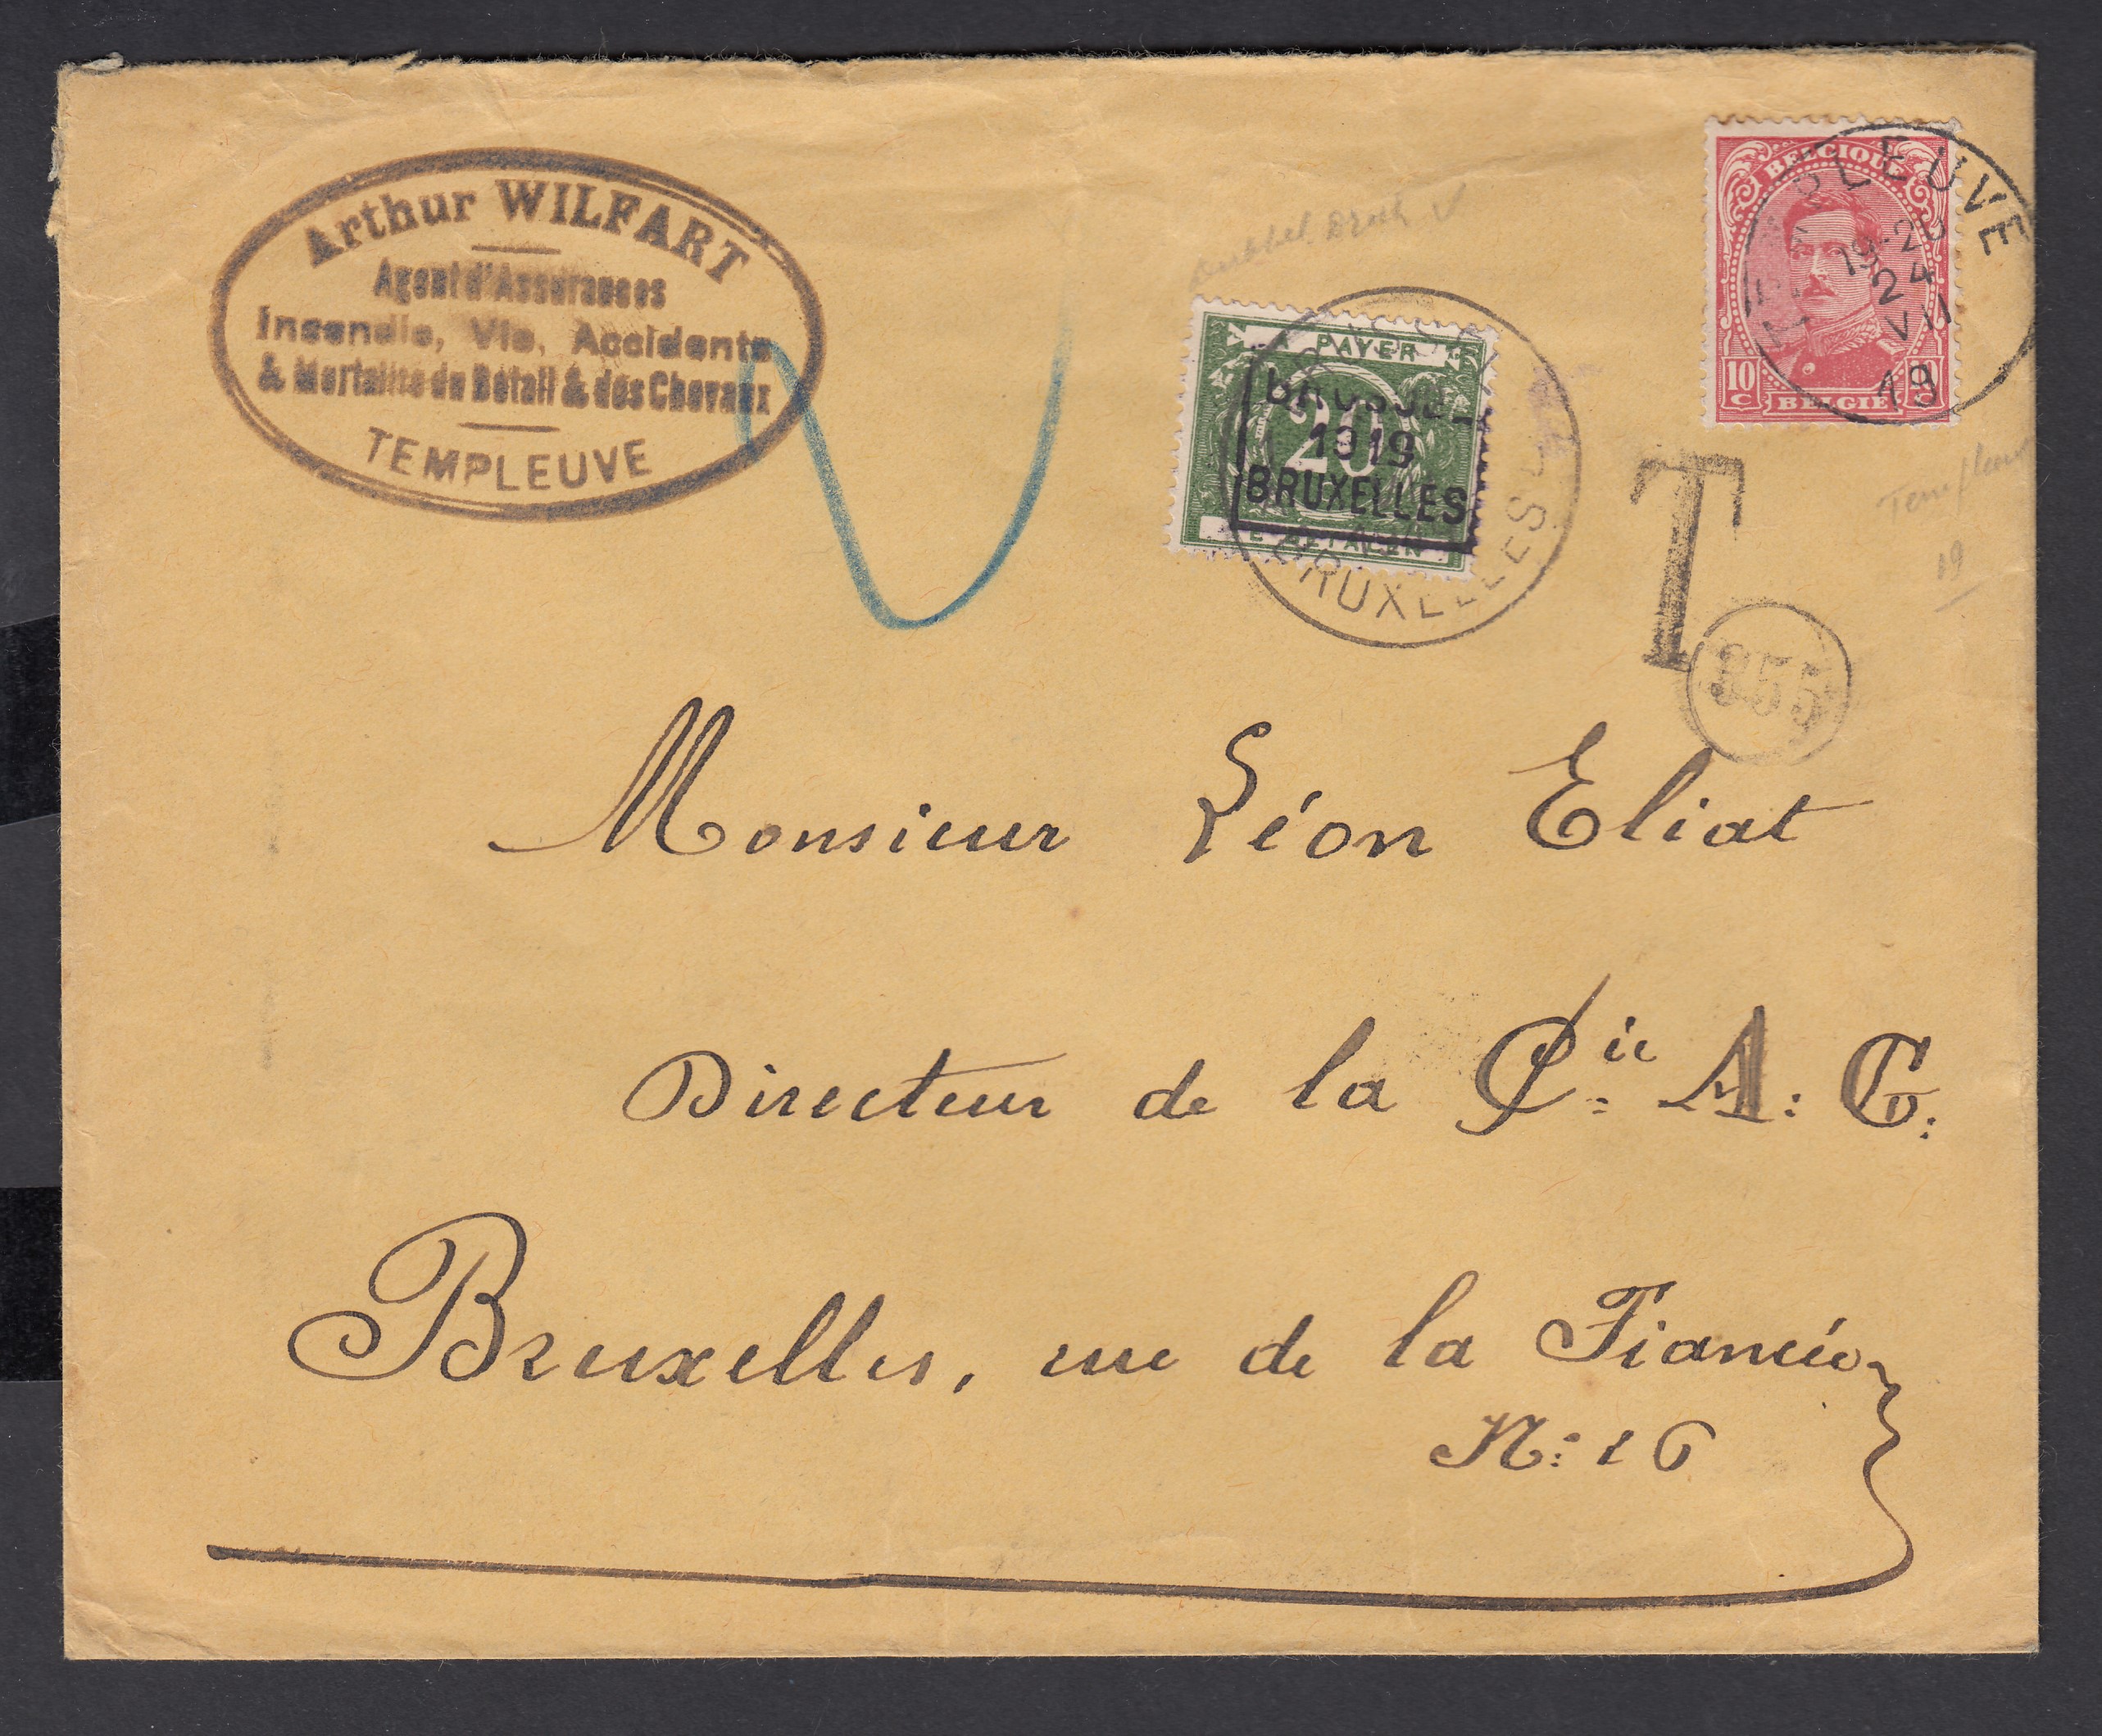 Arthur WILFART
Agent d'Assurances
Incendie, Vie, Accidents
& Mortalité du Bétail & des Chevaux
TEMPLEUVE
BELGIQUE
TEMPLEUVE
19-20
24
VII
19
10 c
BELGIË
Dubbel Druk
A PAYER
20
TE BETALEN
BRUSSEL
1919
BRUXELLES
BRUXELLES
T
355
Templeuve
19
Monsieur Léon Eliat
Directeur de la Cie A. G.
Bruxelles, rue de la Fiancée
N: 16